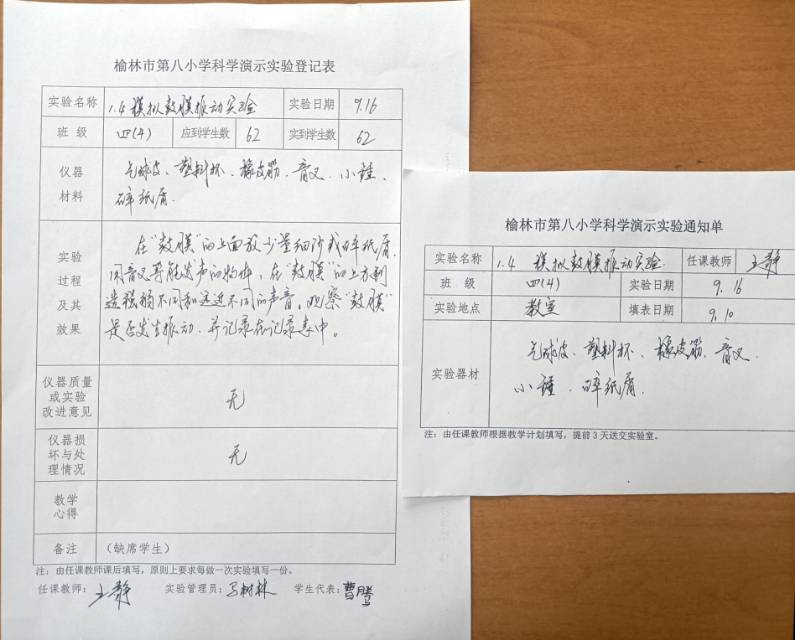 榆林市第八小学科学演示实验登记表
实验名称 1.4 模拟鼓膜振动实验 实验日期 9.16
班 级 四(4) 应到学生数 62 实到学生数 62
仪器材料 气球皮、塑料杯、橡皮筋、音叉、小锤、
碎纸屑.
实验过程及其效果 在"鼓膜"的上面放少量细沙或碎纸屑,
用音叉等能发声的物体,在"鼓膜"的上方制
造强弱不同和远近不同的声音。观察"鼓膜"
是否发生振动,并记录在记录表中。
仪器质量或实验改进意见 无
仪器损坏与处理情况 无
教学心得
备注 (缺席学生)
注:由任课教师课后填写,原则上要求每做一次实验填写一份。
任课教师: 王静 实验管理员: 马树林 学生代表: 曹腾
榆林市第八小学科学演示实验通知单
实验名称 1.4 模拟鼓膜振动实验. 任课教师 王静
班 级 四(4) 实验日期 9.16
实验地点 教室 填表日期 9.10
实验器材 气球皮、塑料杯、橡皮筋、音叉、
小锤、碎纸屑.
注:由任课教师根据教学计划填写,提前3天送交实验室。